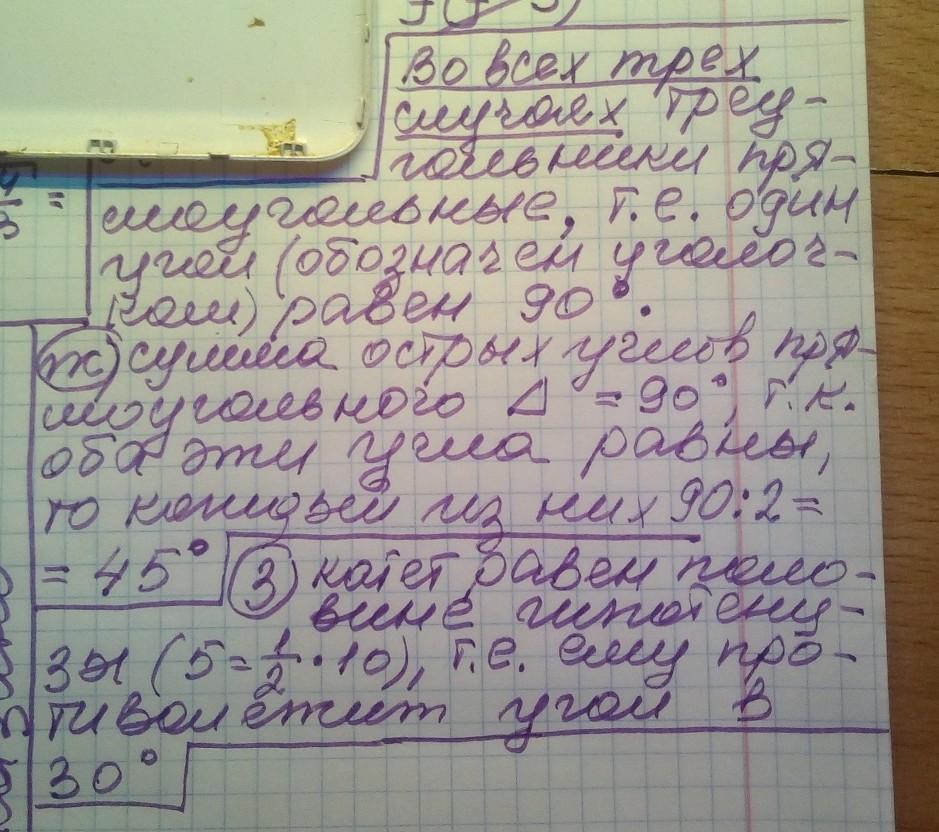 Во всех трех
случаях треу-
гольники пря-
моугольные, т.е. один
угол (обозначен уголоч-
ком) равен 90°.
ж) сумма острых углов пря-
моугольного Δ = 90°, т.к.
оба эти угла равны,
то каждый из них 90:2=
= 45°
з) катет равен поло-
вине гипотену-
зы (5=1/2·10), т.е. ему про-
тиволежит угол в
30°